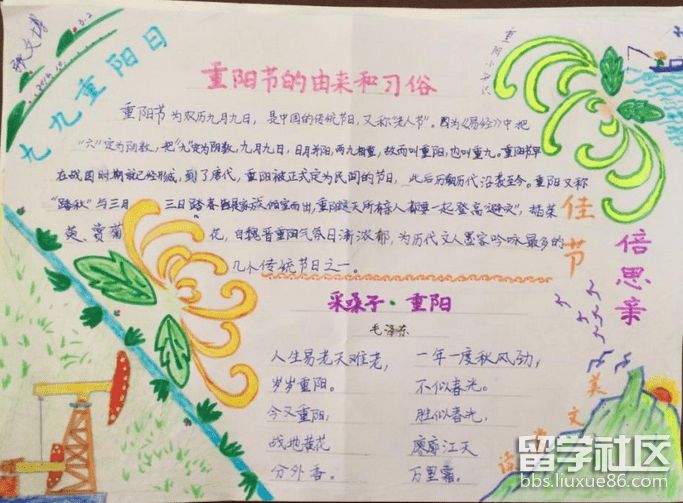 九九重阳日
重阳节的由来和习俗
重阳节为农历九月九日，是中国的传统节日，又称"老人节"。因为《易经》中把
"六"定为阴数，把"九"定为阳数，九月九日，日月并阳，两九相重，故而叫重阳，也叫重九。重阳节早
在战国时期就已经形成，到了唐代，重阳被正式定为民间的节日，此后历朝历代沿袭至今。重阳又称
"踏秋"与三月三日踏春皆是家族倾室而出，重阳这天所有亲人都要一起登高"避灾"，插茱
萸、赏菊花，自魏晋重阳气氛日渐浓郁，为历代文人墨客吟咏最多的
几个传统节日之一。
佳节
倍思亲
采桑子·重阳
毛泽东
人生易老天难老，
岁岁重阳。
今又重阳，
战地黄花
分外香。
一年一度秋风劲，
不似春光。
胜似春光，
廖廓江天
万里霜。
美文
留学社区
bbs.liuxue86.com